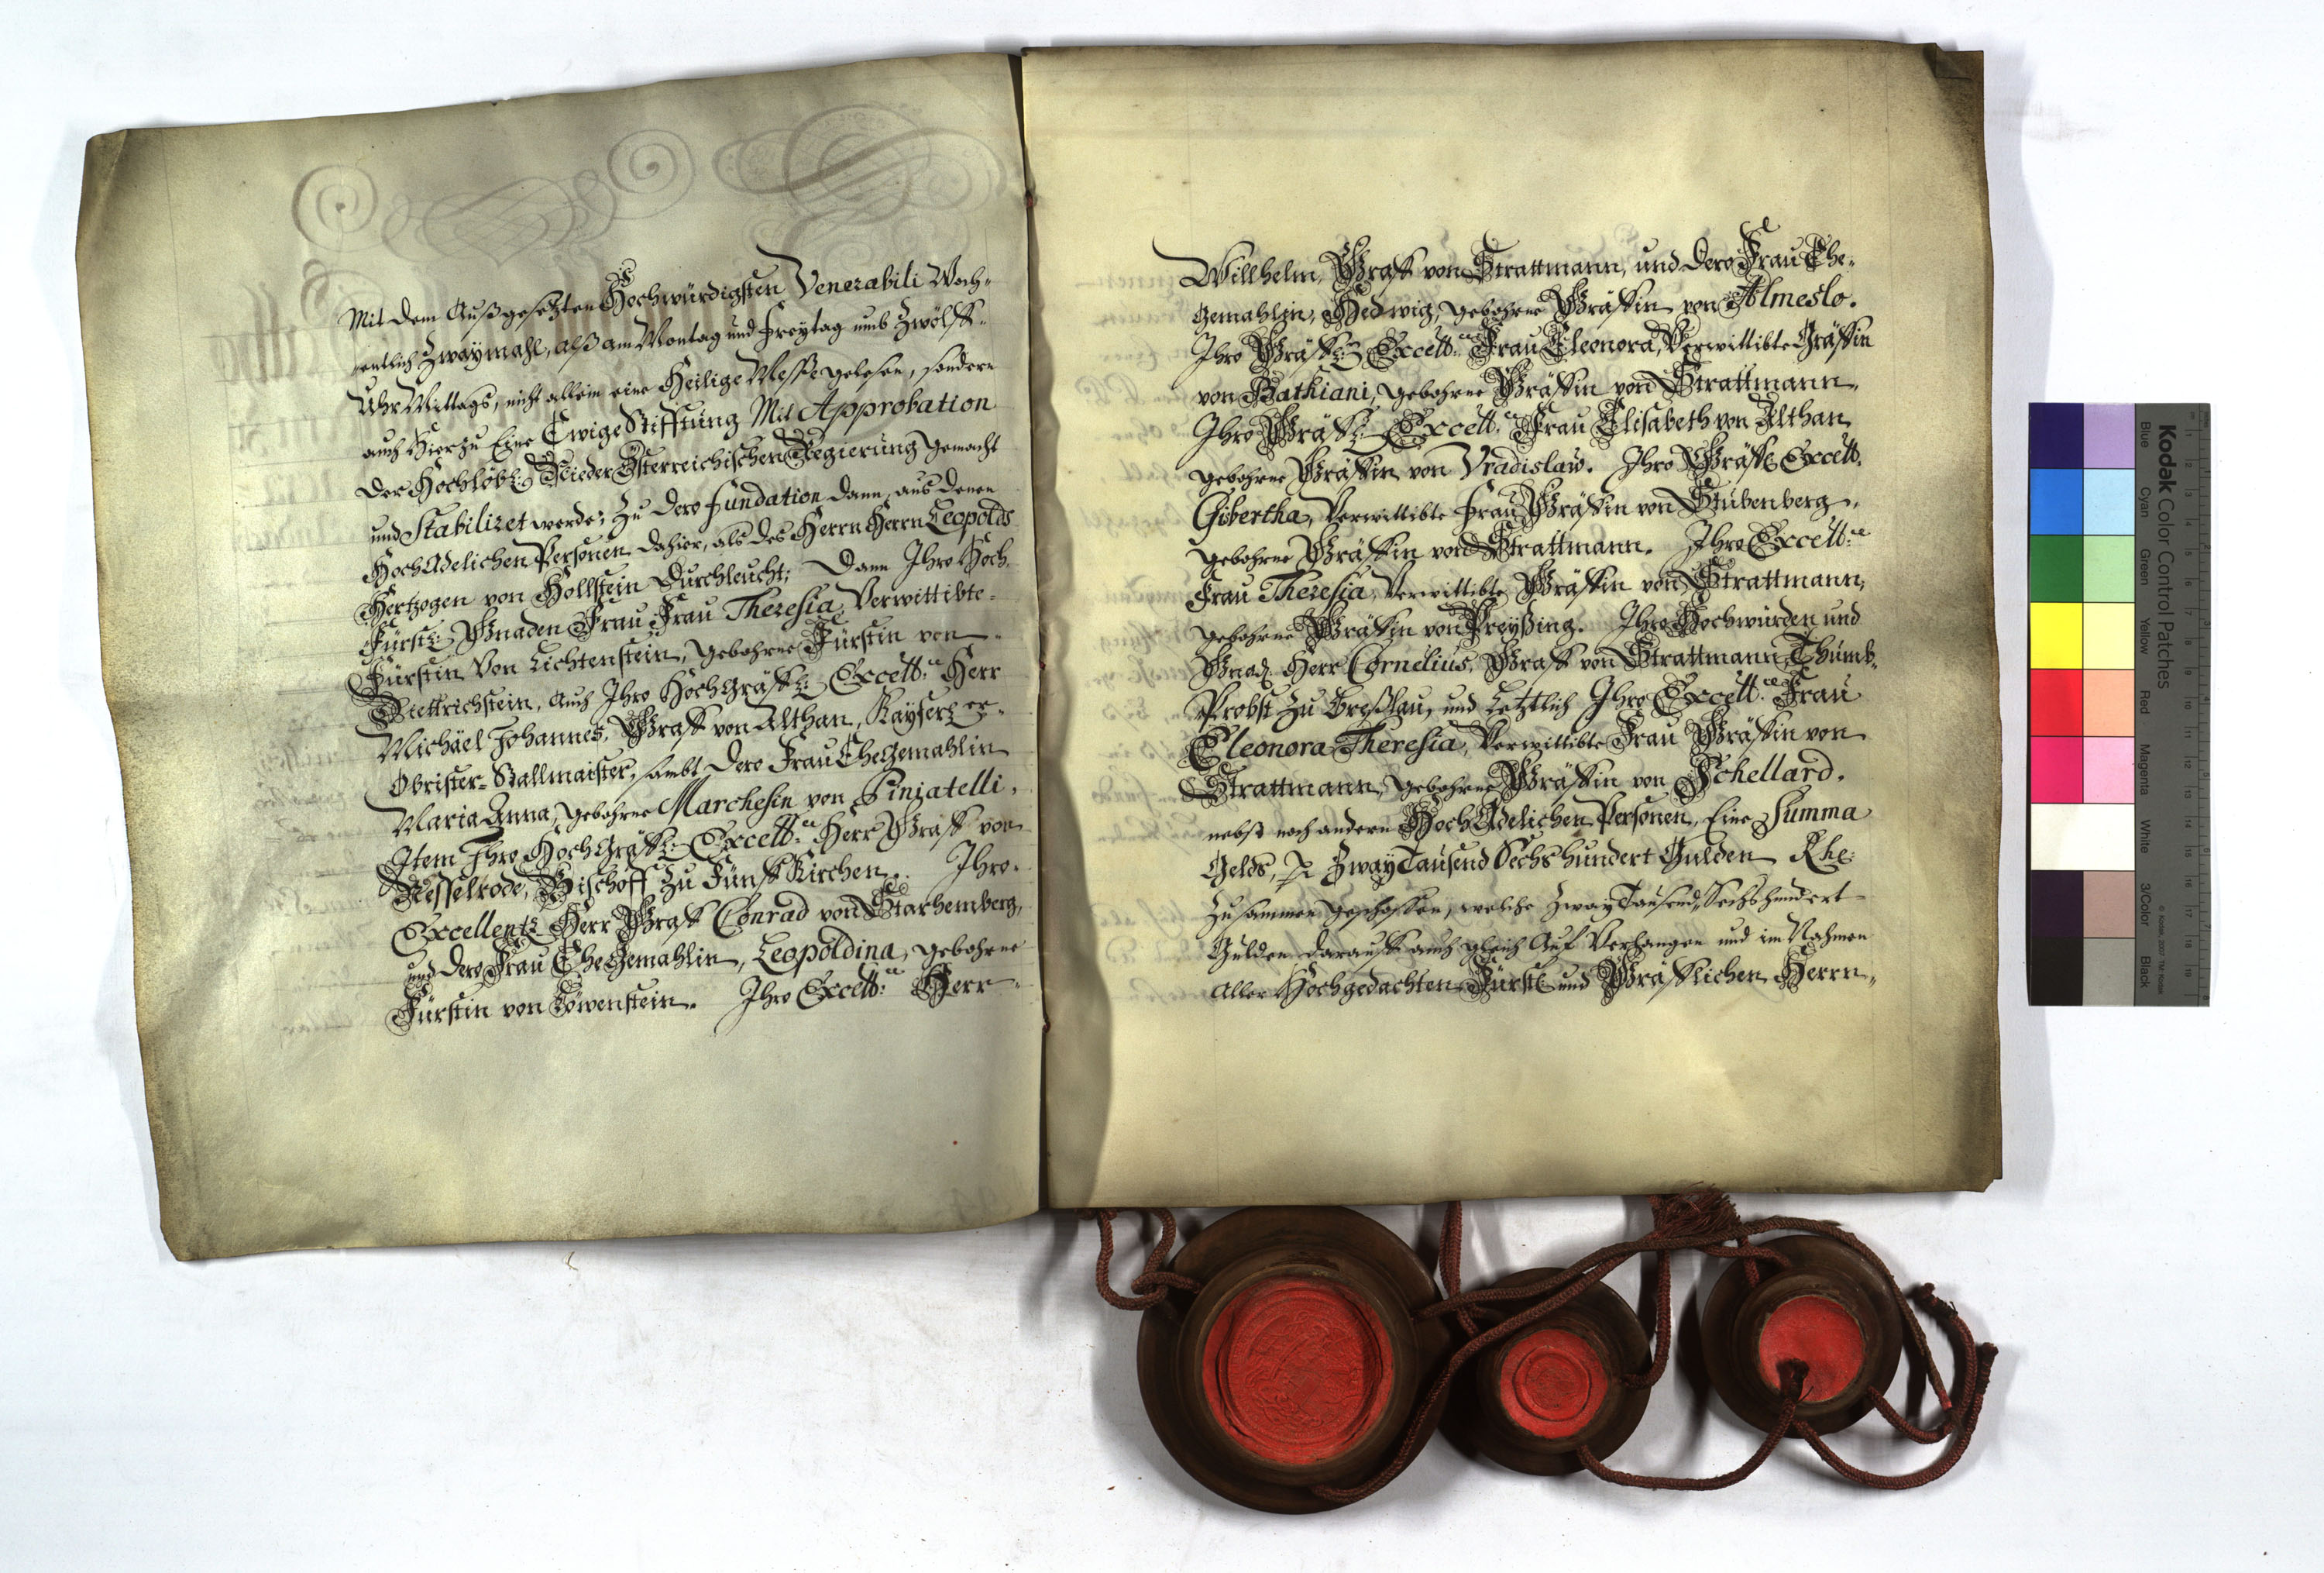 Mit dem Außgesetzten Hochwürdigsten Venerabili Woch-
entlich Zwaymahl, alß am Montag und Freytag umb Zwölff
Uhr Mittags, nicht allein eine Heilige Messe gelesen, sondern
auch Hierzu Eine Ewige Stifftung Mit Approbation
Der Hochlöbl: Nieder Österreichischen Regierung gemacht
und Stabiliret werde; Zu Dero Fundation dann, aus denen
Hoch Adelichen Personen dahier, als des Herrn Herrn Leopolds
Hertzogen von Hollstein Durchleucht; Dann Ihro Hoch-
Fürstl: Gnaden Frau Frau Theresia, Verwittibte
Fürstin Von Lichtenstein, gebohrne Fürstin von
Diettrichstein, Auch Ihro Hoch Gräffl: Excell:ce Herr
Michäel Johannes, Graff von Althan, Kayserl er
Obrister-Stallmaister, sambt Dero Frau Ehegemahlin
Maria Anna, gebohrne Marchesin von Piniatelli.
Item Ihro Hoch Gräffl: Excell:ce Herr Graff von
Nesselrode, Bischoff Zu Fünff Kirchen. Ihro
Excellentz Herr Graff Conrad von Starhemberg,
und Dero Frau Ehe Gemahlin, Leopoldina, gebohrne
Fürstin von Löwenstein. Ihro Excell:ce Herr
Willhelm, Graff von Strattmann, und Dero Frau Ehe-
gemahlin, Hedwig, gebohrne Gräffin von Almeslo.
Ihro Gräffl: Excell:ce Frau Eleonora, Verwittibte Gräffin
von Bathiani, gebohrne Gräffin von Strattmann.
Ihro Gräffl: Excell:ce Frau Elisabeth von Althan
gebohrne Gräffin von Vradislaw. Ihro Gräffl: Excell:
Gibertha, Verwittibte Frau Gräffin von Stubenberg,
gebohrne Gräffin von Strattmann. Ihro Excell:ce
Frau Theresia, Verwittibte Gräffin von Strattmann,
gebohrne Gräffin von Preyßing. Ihro Hochwürden und
Gnad: Herr Cornelius, Graff von Strattmann, Thumb-
Probst Zu Breßlau, und Letztlich Ihro Excell:ce Frau
Eleonora Theresia, Verwittibte Frau Gräffin von
Strattmann, gebohrne Gräffin von Schellard.
nebst noch andern Hoch Adelichen Personen, Eine Summa
Gelds, Zway Tausend Sechs hundert Gulden Rhe:
Zusammen geschossen, welche Zway Tausend Sechshundert
Gulden darauff auch gleich Auf Verlangen und im Nahmen
Aller Hochgedachten Fürstl: und Gräfflichen Herrn
Kodak Color Control Patches
Blue Cyan Green Yellow Red Magenta White 3/Color Black